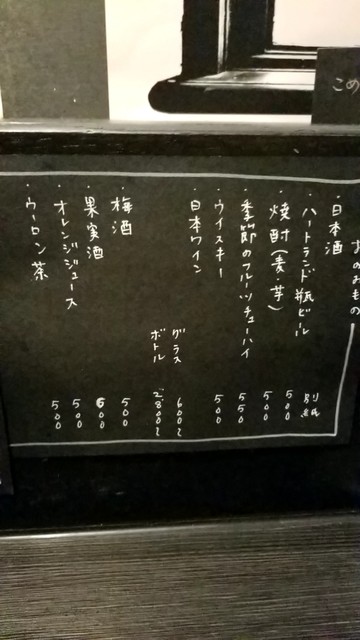 こめ
おのみもの
・日本酒 別紙
・ハートランド瓶ビール 500
・焼酎(麦・芋) 500
・季節のフルーツチューハイ 550
・ウイスキー 500
・日本ワイン
グラス 600~
ボトル 2800~
・梅酒 500
・果実酒 600
・オレンジジュース 500
・ウーロン茶 500